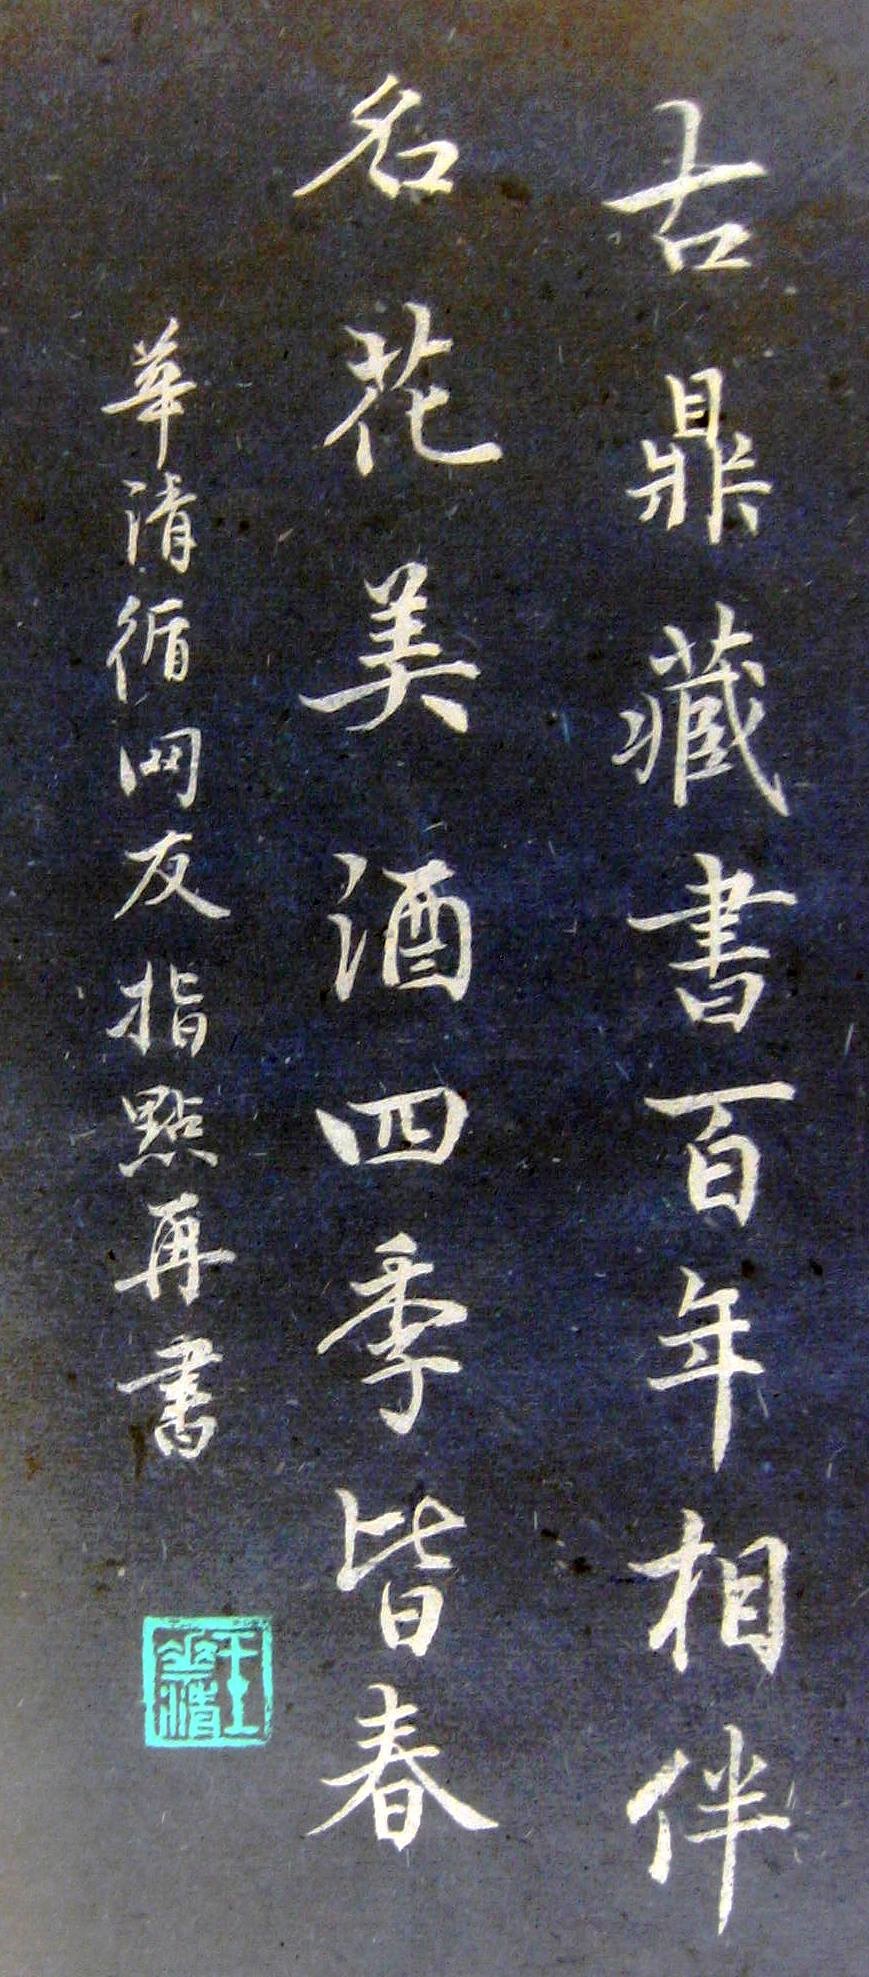 古鼎藏書百年相伴
名花美酒四季皆春
華清循网友指點再書
王華清